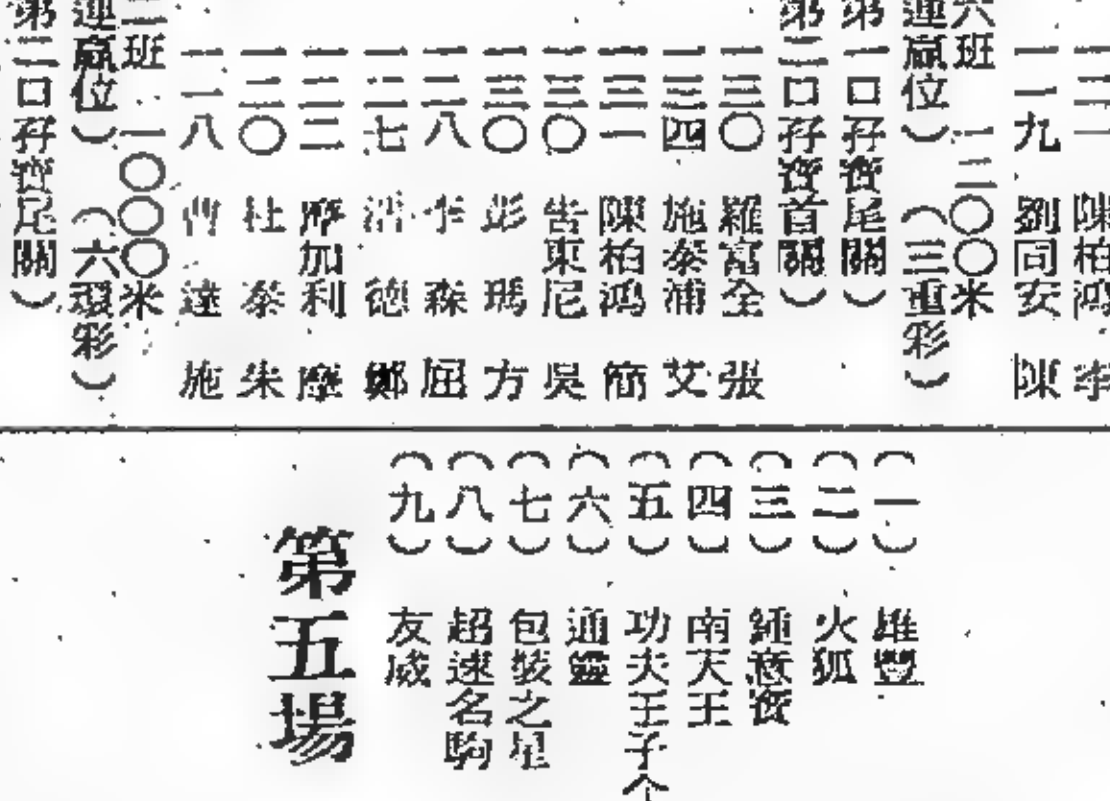 一二一 陳柏鴻 李
一一九 劉同安 陳
六班 一二〇〇米
連贏位）（三重彩）
第一口孖寶尾關）
第二口孖寶首關）
一三〇 羅富全 張
一三四 施泰浦 艾
一三一 陳柏鴻 簡
一三〇 告東尼 吳
一三〇 彭瑪 方
一二八 李森 屈
一二七 德 鄭
一二二 摩加利 摩
一二〇 杜泰 朱
一一八 曹達 施
二班 一〇〇〇米
連贏位）（六環彩）
第二口孖寶尾關）
（一） 雄豐
（二） 火狐
（三） 意寶
（四） 南天王
（五） 功夫王子
（六） 通靈
（七） 包裝之星
（八） 超速名駒
（九） 友威
第五場